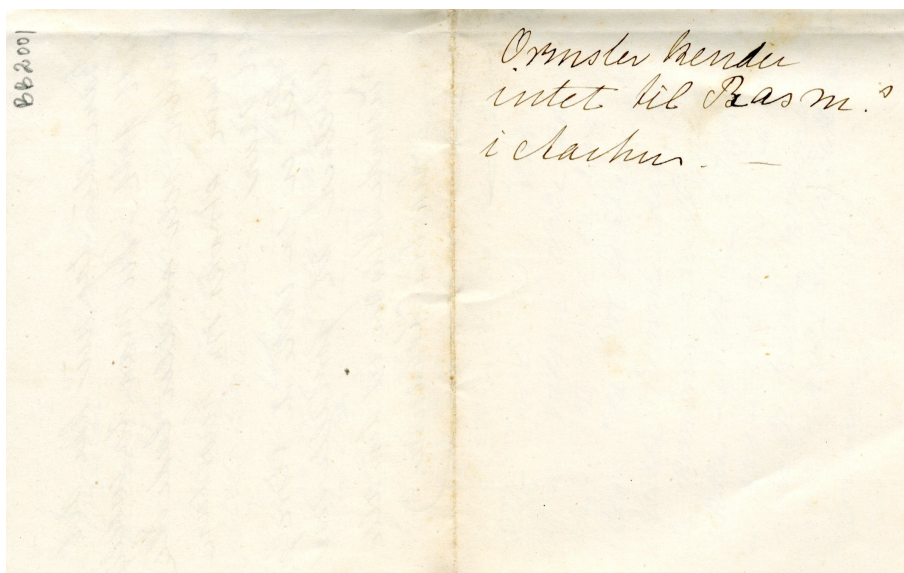 BB2001
Ørmsler kender
intet til Rasm.s
i Aarhus. —